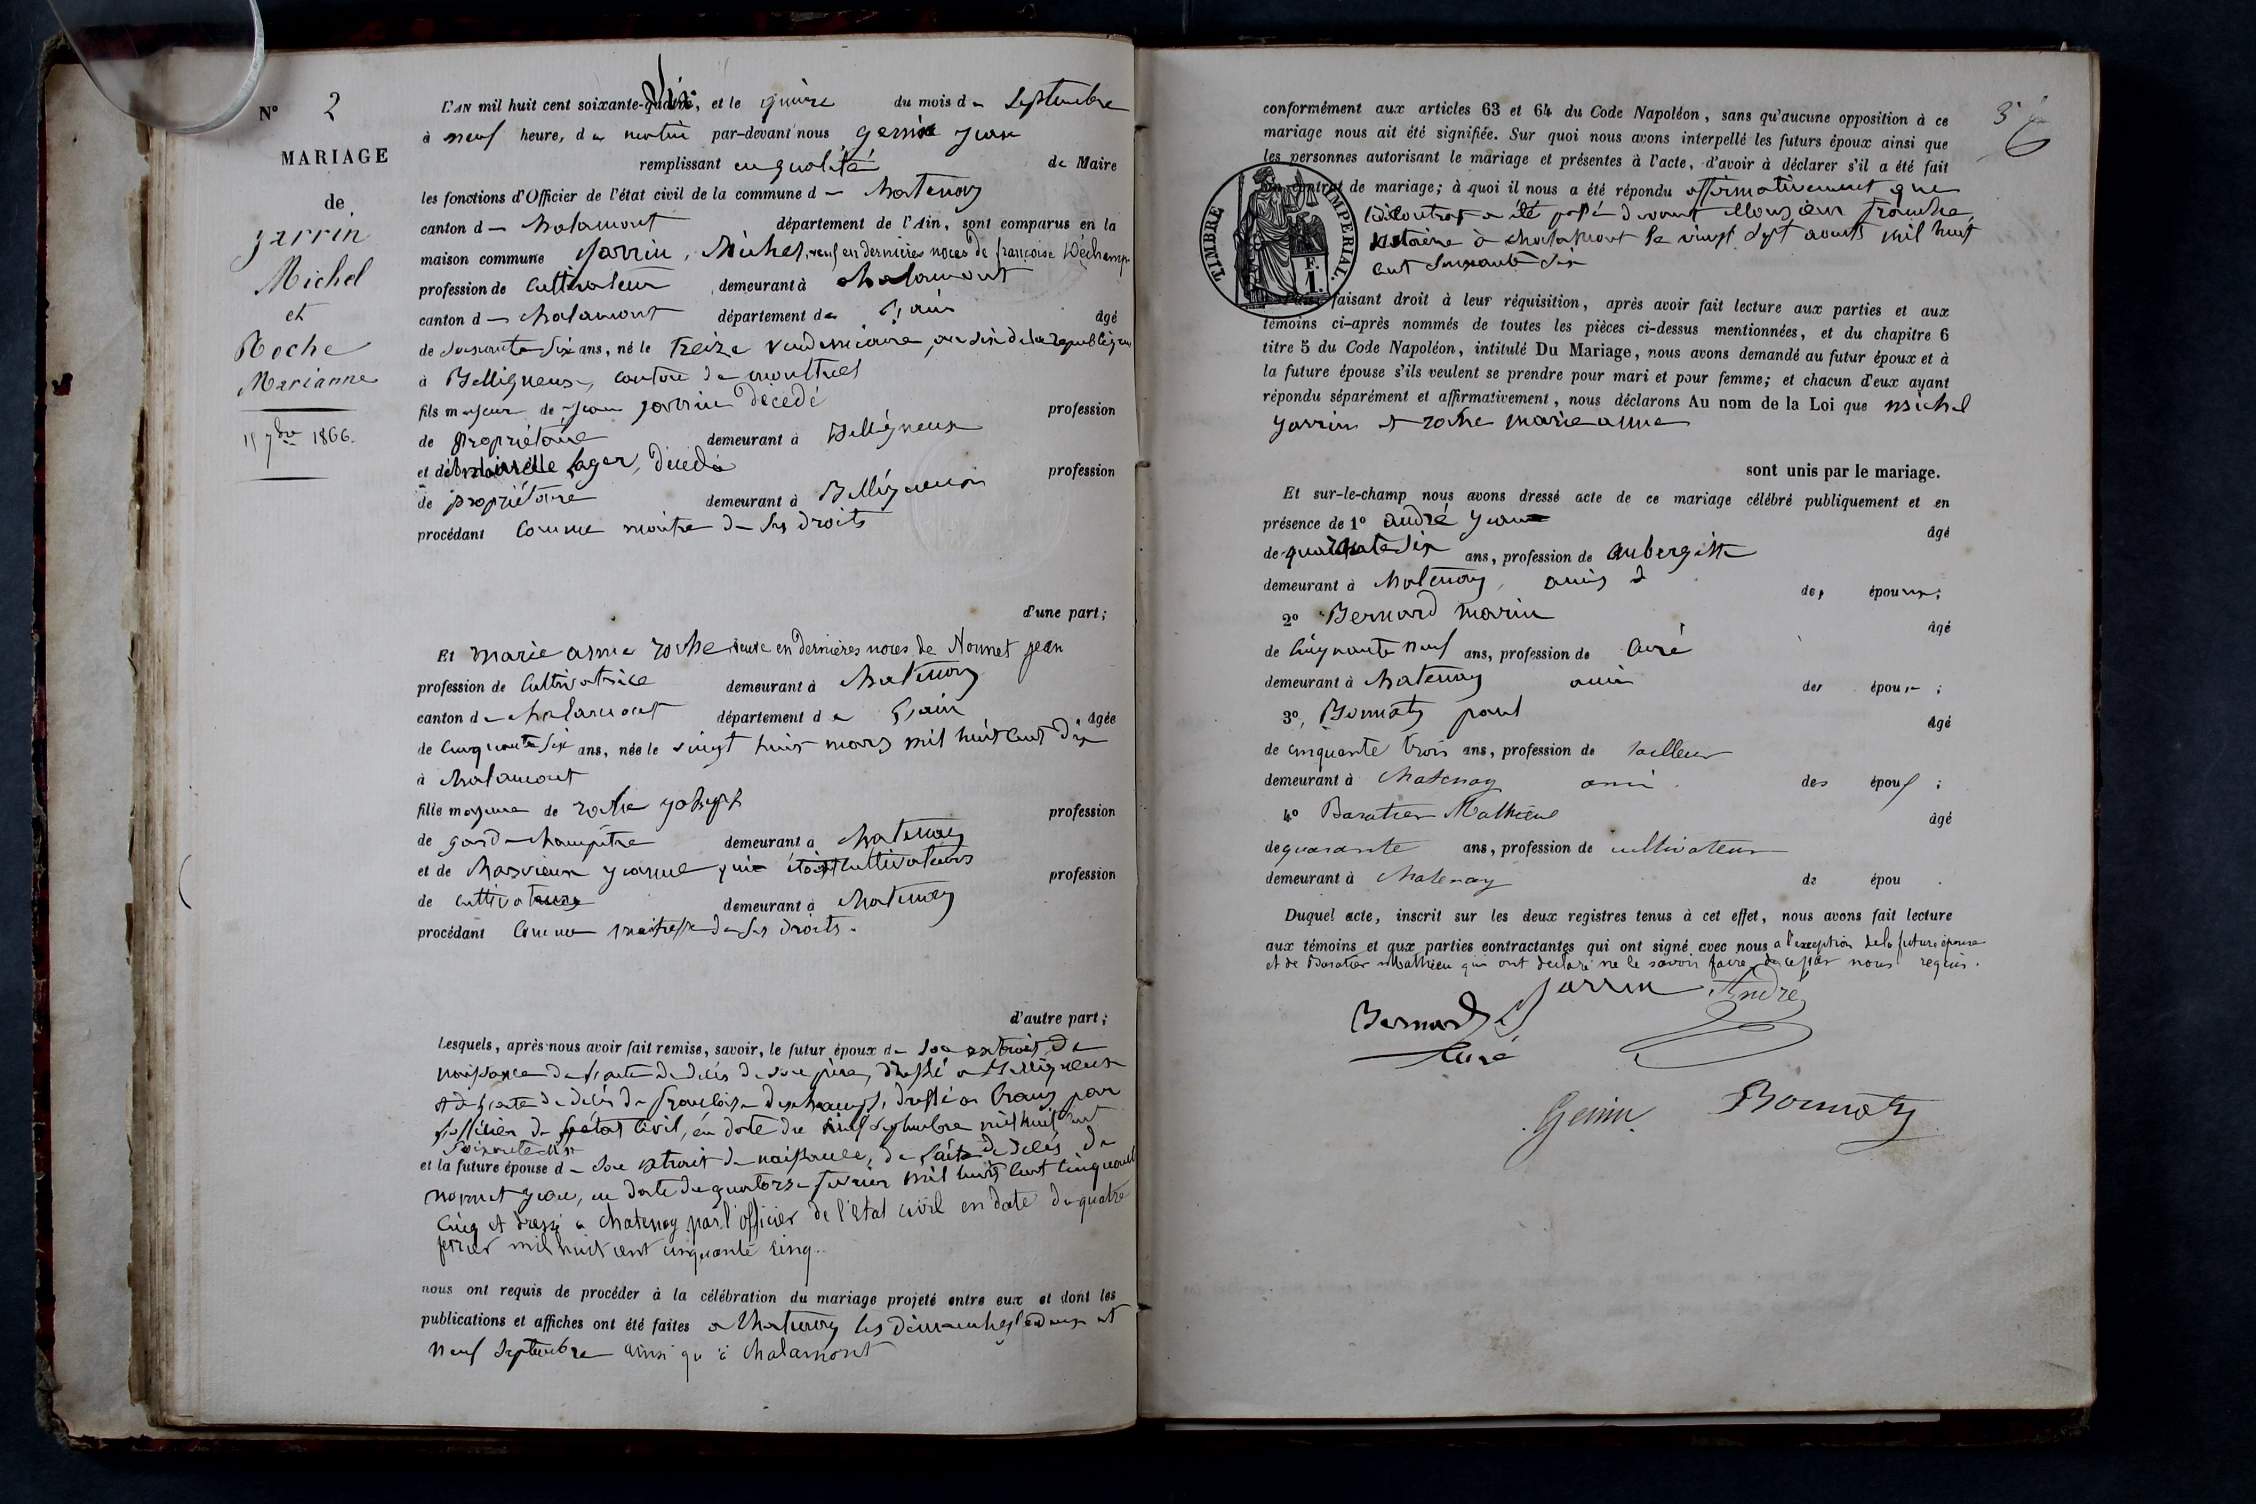 N° 2
MARIAGE
de
Jarrin
Michel
et
Roche
Marianne
15 7bre 1866.
L'AN mil huit cent soixante-six, et le quinze du mois de Septembre
à neuf heure, du matin par-devant nous Genin Jean
remplissant en qualité de Maire
les fonctions d'Officier de l'état civil de la commune d Chatenay
canton d Chalamont département de l'Ain, sont comparus en la
maison commune Jarrin, Michel, veuf en dernières noces de françoise Déchamp
profession de Cultivateur demeurant à Chalamont
canton d Chalamont département de l'ain âgé
de soixante six ans, né le treize vendemiaire, an six de la republique
à Belligneux, canton de montluel
fils majeur de Jean Jarrin décédé profession
de propriétaire demeurant à Belligneux
et de lager, décédée profession
de propriétaire demeurant à Belligneux
procédant comme maitre de ses droits
d'une part;
Et marie anne roche veuve en dernières noces de Nonnet jean
profession de Cultivatrice demeurant à Chatenay
canton de chalamont département de l'ain âgée
de cinquante six ans, née le vingt huit mars mil huit cent dix
à Chalamont
fille majeure de roche joseph profession
de garde champêtre demeurant à Chatenay
et de Jeanne qui était cultivateurs profession
de demeurant à Chatenay
procédant comme maitresse de ses droits.
d'autre part;
Lesquels, après nous avoir fait remise, savoir, le futur époux de son extrait de
naissance de l'acte de décès de son père, dressé a Belligneux
et de l'acte de décès de françoise deschamps, dressé a par
l'officier de l'état civil, en date du septembre mil huit cent
soixante
et la future épouse d son extrait de naissance, de l'acte de décès de
nonnet jean, en date du quatorze fevrier mil huit cent cinquante
cinq et dressé a chatenay par l'officier de l'état civil en date du quatre
fevrier mil huit cent cinquante cinq.
nous ont requis de procéder à la célébration du mariage projeté entre eux et dont les
publications et affiches ont été faites a Chatenay les dimanches deux et
neuf Septembre ainsi qu'à Chalamont
conformément aux articles 63 et 64 du Code Napoléon, sans qu'aucune opposition à ce
mariage nous ait été signifiée. Sur quoi nous avons interpellé les futurs époux ainsi que
les personnes autorisant le mariage et présentes à l'acte, d'avoir à déclarer s'il a été fait
un contrat de mariage; à quoi il nous a été répondu affirmativement que
contrat a été passé devant Monsieur
notaire à chalamont le vingt sept mil huit
cent soixante six
TIMBRE IMPÉRIAL.
F.
1.
faisant droit à leur réquisition, après avoir fait lecture aux parties et aux
témoins ci-après nommés de toutes les pièces ci-dessus mentionnées, et du chapitre 6
titre 5 du Code Napoléon, intitulé Du Mariage, nous avons demandé au futur époux et à
la future épouse s'ils veulent se prendre pour mari et pour femme; et chacun d'eux ayant
répondu séparément et affirmativement, nous déclarons Au nom de la Loi que michel
jarrin et roche marie anne
sont unis par le mariage.
Et sur-le-champ nous avons dressé acte de ce mariage célébré publiquement et en
présence de 1° andré Jean âgé
de quarante six ans, profession de aubergiste
demeurant à Chatenay, amis des époux;
2° Bernard marin âgé
de cinquante neuf ans, profession de Curé
demeurant à Chatenay ami des époux;
3°, Bonnaty paul âgé
de cinquante trois ans, profession de tailleur
demeurant à Chatenay ami des époux;
4° Baratier Mathieu âgé
de quarante ans, profession de cultivateur
demeurant à Chatenay de épou
Duquel acte, inscrit sur les deux registres tenus à cet effet, nous avons fait lecture
aux témoins et aux parties contractantes qui ont signé avec nous a l'exception de la future épouse
et de Baratier Mathieu qui ont déclaré ne le savoir faire de ce par nous requis.
Jarrin André
Bernard
Curé
Genin Bonnaty